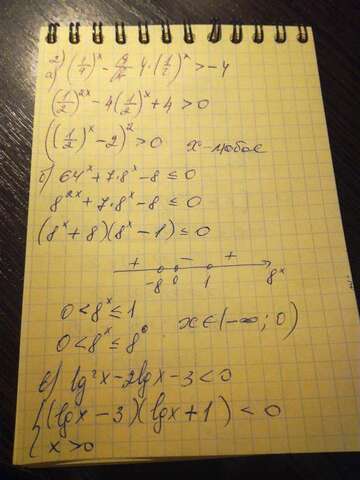 2) а) (1/4)^x - 4·(1/2)^x > -4
(1/2)^2x - 4(1/2)^x + 4 > 0
((1/2)^x - 2)^2 > 0 x-любое
б) 64^x + 7·8^x - 8 ≤ 0
8^2x + 7·8^x - 8 ≤ 0
(8^x + 8)(8^x - 1) ≤ 0
+ - +
-8 0 1 8^x
0 < 8^x ≤ 1
0 < 8^x ≤ 8^0 x∈(-∞; 0)
в) lg²x - 2lgx - 3 < 0
{(lgx - 3)(lgx + 1) < 0
x > 0